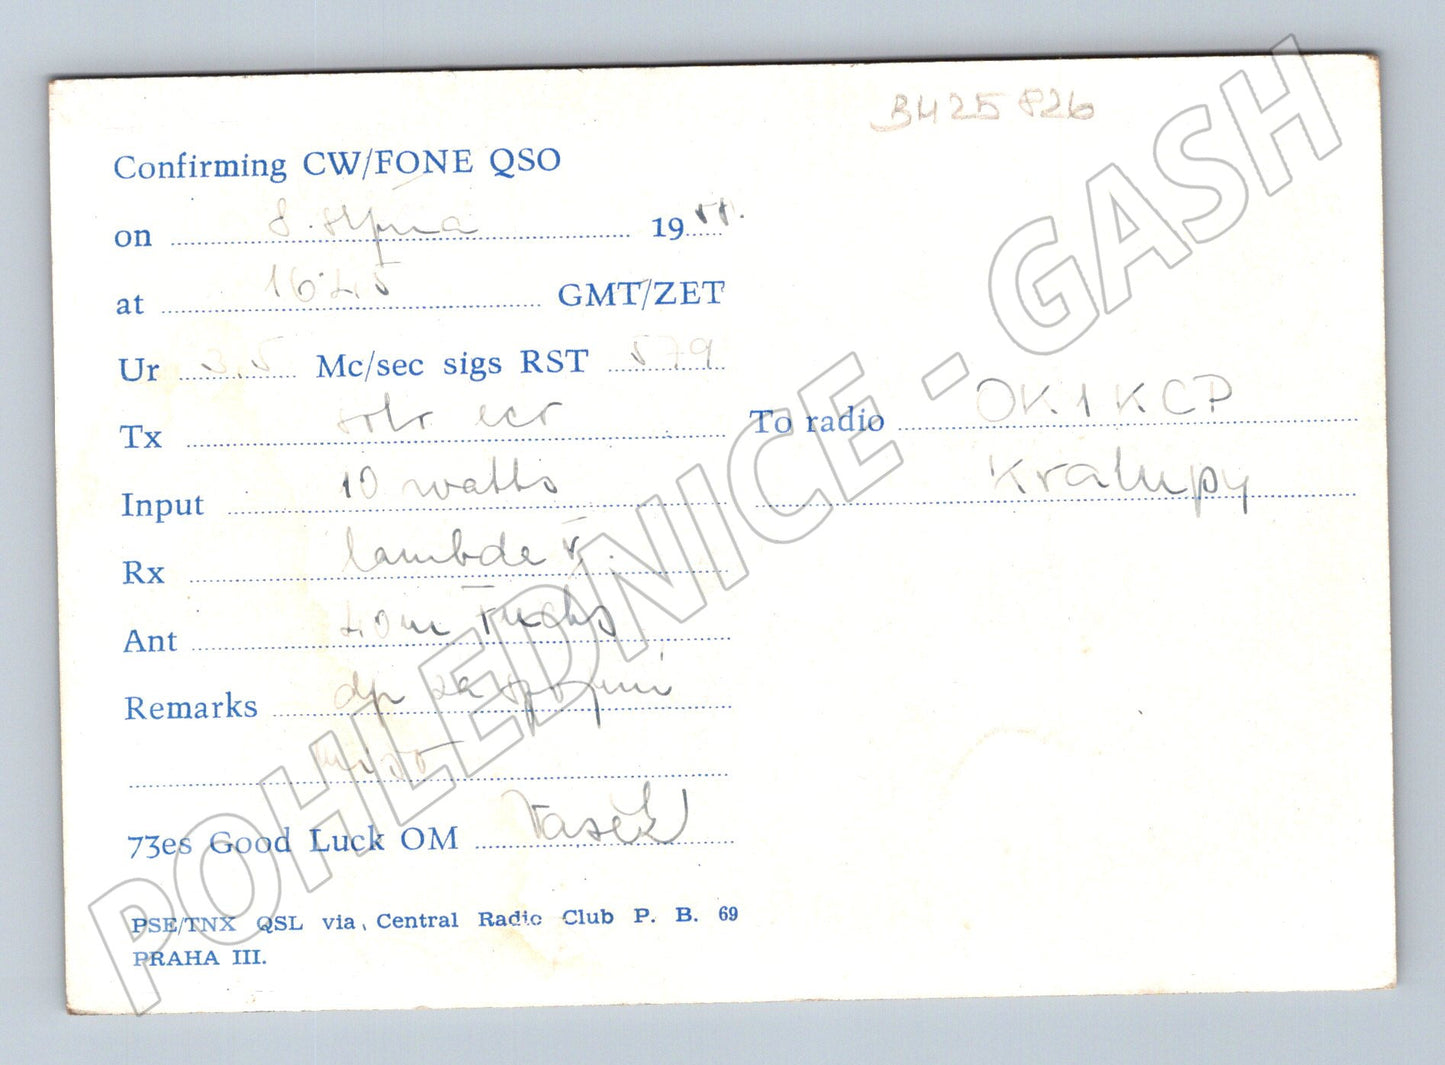 B425826
Confirming CW/FONE QSO
on 8. srpna 1955.
at 1645 GMT/ZET
Ur 3,5 Mc/sec sigs RST 579
Tx eco
Input 10 watts
Rx lambda V.
Ant 40m Fuchs
Remarks za spojení
73es Good Luck OM Vašek
PSE/TNX QSL via Central Radio Club P. B. 69
PRAHA III.
To radio OK1KCP
Kralupy
POHLEDNICE - GASH